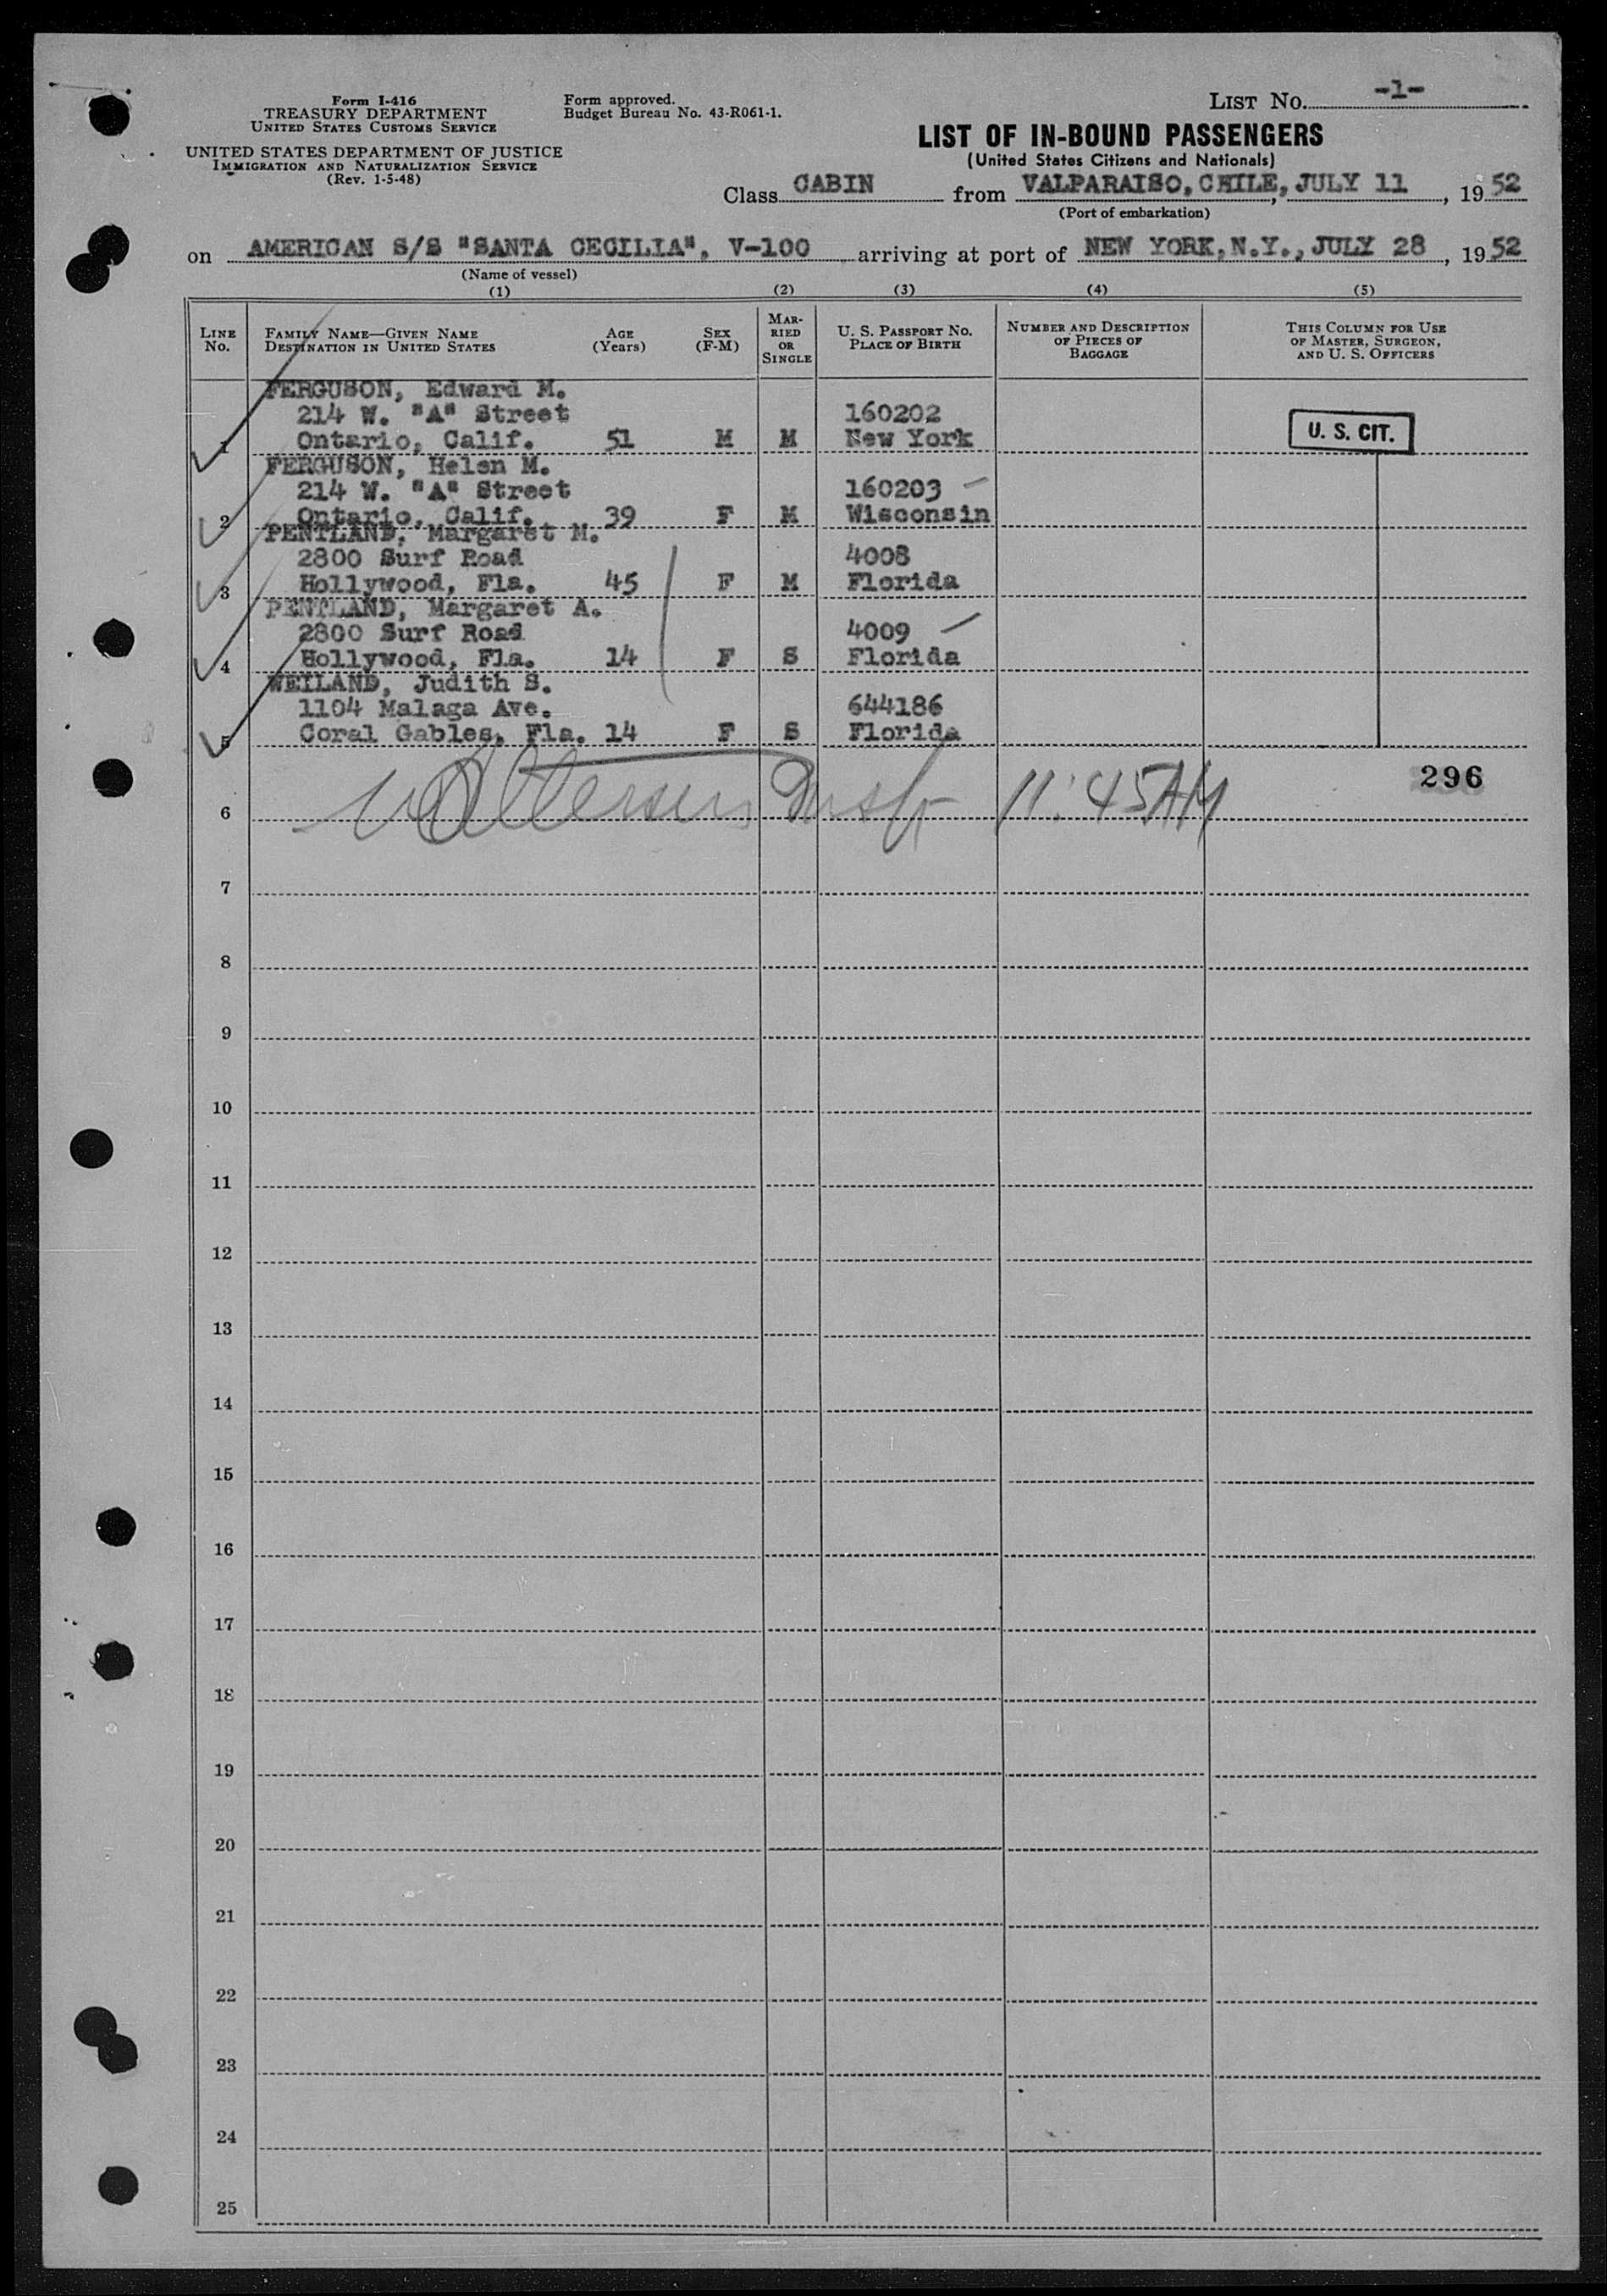 Form I-416
TREASURY DEPARTMENT
UNITED STATES CUSTOMS SERVICE
UNITED STATES DEPARTMENT OF JUSTICE
IMMIGRATION AND NATURALIZATION SERVICE
(Rev. 1-5-48)
Form approved.
Budget Bureau No. 43-R061-1.
LIST NO. -1-
LIST OF IN-BOUND PASSENGERS
(United States Citizens and Nationals)
Class CABIN from VALPARAISO, CHILE, JULY 11, 1952
(Port of embarkation)
on AMERICAN S/S "SANTA CECILIA", V-100 arriving at port of NEW YORK, N.Y., JULY 28, 1952
(Name of vessel)
(1) (2) (3) (4) (5)
LINE NO. FAMILY NAME—GIVEN NAME DESTINATION IN UNITED STATES AGE (YEARS) SEX (F-M) MARRIED OR SINGLE U. S. PASSPORT NO. PLACE OF BIRTH NUMBER AND DESCRIPTION OF PIECES OF BAGGAGE THIS COLUMN FOR USE OF MASTER, SURGEON, AND U. S. OFFICERS
FERGUSON, Edward M.
214 W. "A" Street 160202
1 Ontario, Calif. 51 M M New York U. S. CIT.
FERGUSON, Helen M.
214 W. "A" Street 160203
2 Ontario, Calif. 39 F M Wisconsin
PENTLAND, Margaret M.
2800 Surf Road 4008
3 Hollywood, Fla. 45 F M Florida
PENTLAND, Margaret A.
2800 Surf Road 4009
4 Hollywood, Fla. 14 F S Florida
WEILAND, Judith S.
1104 Malaga Ave. 644186
5 Coral Gables, Fla. 14 F S Florida
296
6 11:45AM
7
8
9
10
11
12
13
14
15
16
17
18
19
20
21
22
23
24
25